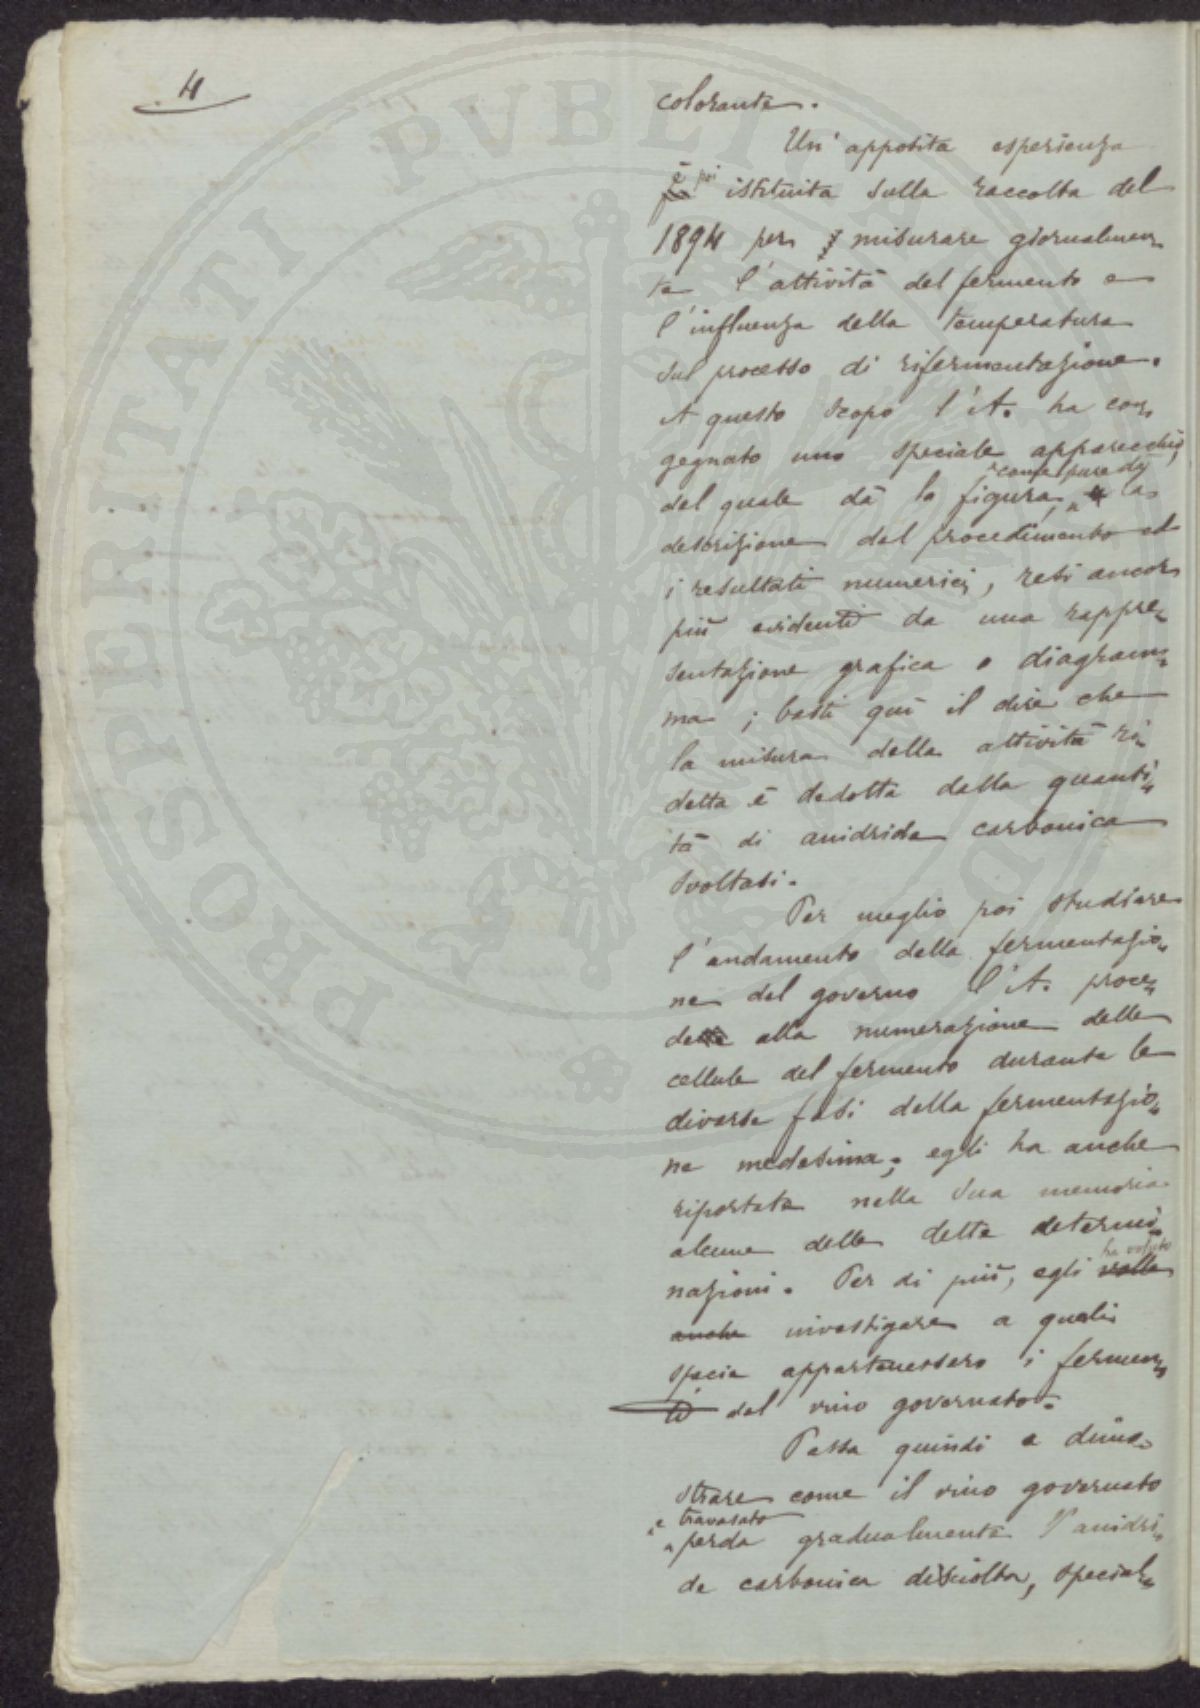 4
colorante.
Un' apposita esperienza
fu è poi istituita sulla raccolta del
1894 per misurare giornalmen„
te l'attività del fermento e
l'influenza della temperatura
sul processo di rifermentazione.
A questo scopo l'A. ha con„
gegnato uno speciale apparecchio,
del quale dà la figura, come pure dà la
descrizione del procedimento ed
i resultati numerici, resi ancor
più evidenti da una rappre„
sentazione grafica o diagram„
ma ; basti quì il dire che
la misura della attività su„
detta è dedotta dalla quanti„
tà di anidride carbonica
svoltasi.
Per meglio poi studiare
l'andamento della fermentazio„
ne del governo l'A. proce„
dette alla numerazione delle
cellule del fermento durante le
diverse fasi della fermentazio„
ne medesima; egli ha anche
riportate nella sua memoria
alcune delle dette determi„
nazioni. Per di più, egli volle ha voluto
anche investigare a quali
specie appartenessero i fermen„
ti del vino governato.
Passa quindi a dimo„
strare come il vino governato
e travasato
perda gradualmente l'anidri„
de carbonica disciolta, special„
PROSPERITATI PVBLI